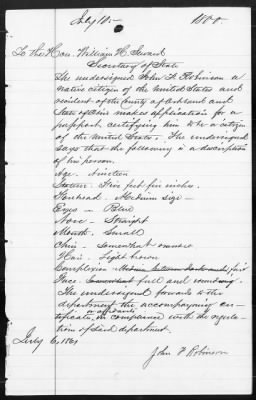 To the Hon. William H. Seward
Secretary of State
The undersigned John F. Robinson a
native citizen of the United States and
resident of the County of Ashland and
State of Ohio makes application for a
passport, certifying him to be a citizen
of the United States. The undersigned
says that the following is a description
of his person.
Age. Nineteen
Stature. Five feet five inches.
Forehead. Medium size
Eyes – Blue
Nose – Straight
Mouth. Small
Chin – Somewhat narrow
Hair. Light brown
Complexion fair
Face. full and round
The undersigned forwards to the
department the accompanying cer-
or affidavits
tificate, in compliance with the regula-
tions of said department.
July 6, 1861
John F Robinson